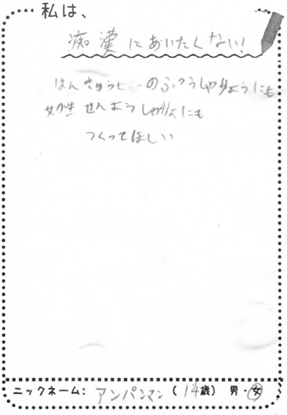 私は、
痴漢にあいたくない!
はんきゅうと…のふつうしゃりょうにも
女性せんようしゃりょうにも
つくってほしい
ニックネーム: アンパンマン (14歳) 男・女